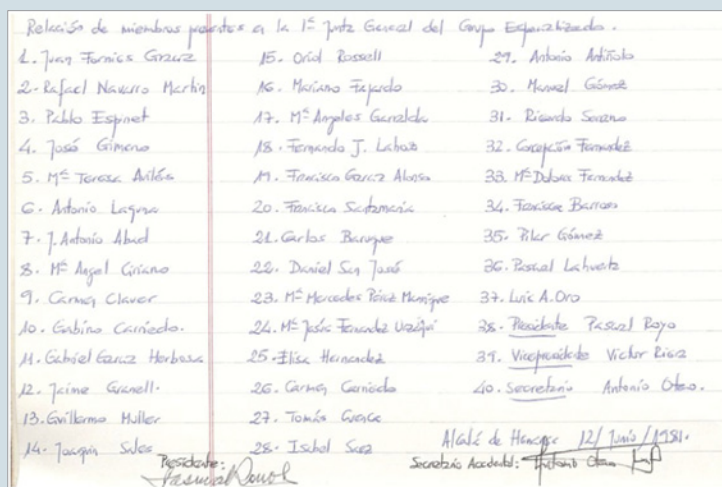 Relación de miembros presentes a la 1ª Junta General del Grupo Especializado.
1. Juan Fornies Gracia
2. Rafael Navarro Martin
3. Pablo Espinet
4. José Gimeno
5. Mª Teresa Avilés
6. Antonio Laguna
7. J. Antonio Abad
8. Mª Angel Ciriano
9. Carmen Claver
10. Gabino Carriedo.
11. Gabriel García Herbosa
12. Jaime Granell.
13. Guillermo Muller
14. Joaquín Sales
15. Oriol Rossell
16. Mariano Fajardo
17. Mª Angeles Garralda
18. Fernando J. Lahoz
19. Francisco García Alonso
20. Francisca Santamaría
21. Carlos Baruque
22. Daniel San José
23. Mª Mercedes Pérez Manrique
24. Mª Jesús Fernandez
25. Elisa Hernandez
26. Carmen Carriedo
27. Tomás Cuenca
28. Isabel Saez
29. Antonio Antiñolo
30. Manuel Gómez
31. Ricardo Serrano
32. Concepción Fernandez
33. Mª Dolores Fernandez
34. Barroso
35. Pilar Gómez
36. Pascual Lahuerta
37. Luis A. Oro
38. Presidente Pascual Royo
39. Vicepresidente Victor Riera
40. Secretario Antonio Otero.
Alcalá de Henares 12/Junio/1981.
Presidente:
Secretario Accidental: